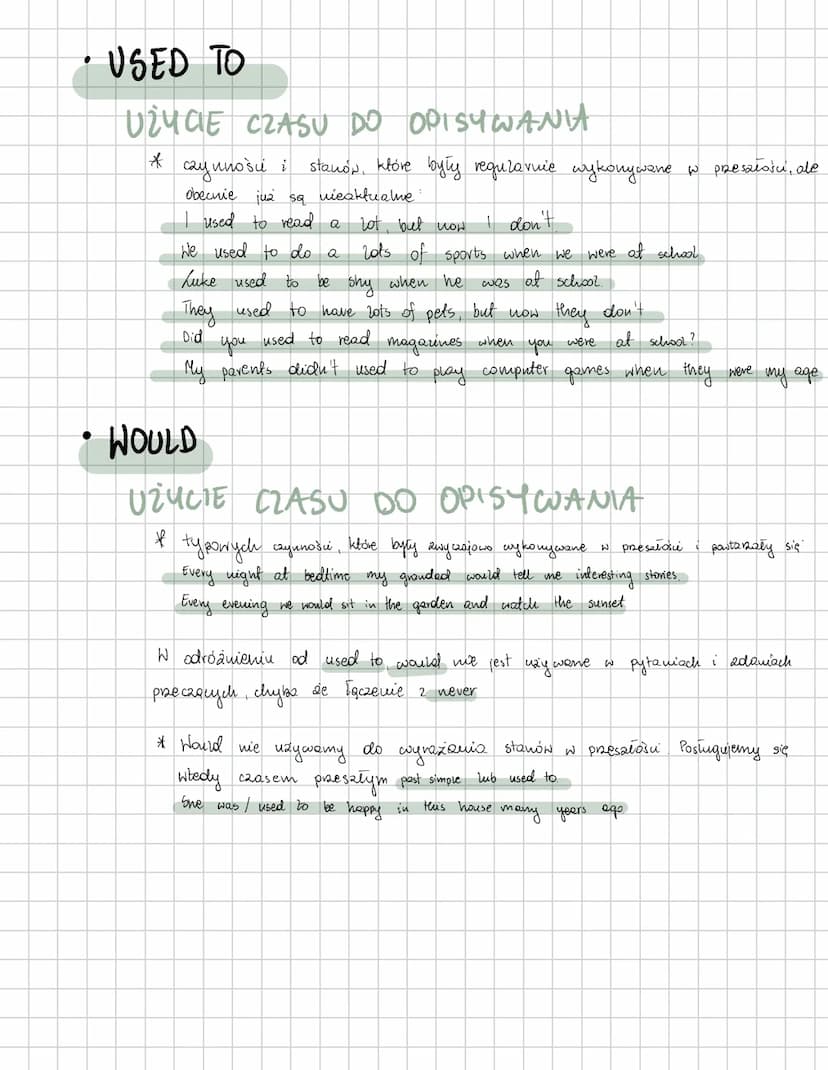 • USED TO
UŻYCIE CZASU DO OPISYWANIA
* czynności i stanów, które były regularnie wykonywane w przeszłości, ale
obecnie już są nieaktualne:
I used to read a lot, but now I don't.
We used to do a lots of sports when we were at school
Luke used to be shy when he was at school.
They used to have lots of pets, but now they don't
Did you used to read magazines when you were at school?
My parents didn't used to play computer games when they were my age
• WOULD
UŻYCIE CZASU DO OPISYWANIA
* typowych czynności, które były zwyczajowo wykonywane w przeszłości i powtarzały się
Every night at bedtime my grandad would tell me interesting stories.
Every evening we would sit in the garden and watch the sunset
W odróżnieniu od used to, would nie jest używane w pytaniach i zdaniach
przeczących, chyba że łączenie z never
* Would nie używamy do wyrażania stanów w przeszłości. Posługujemy się
wtedy czasem przeszłym past simple lub used to
She was / used to be happy in this house many years ago